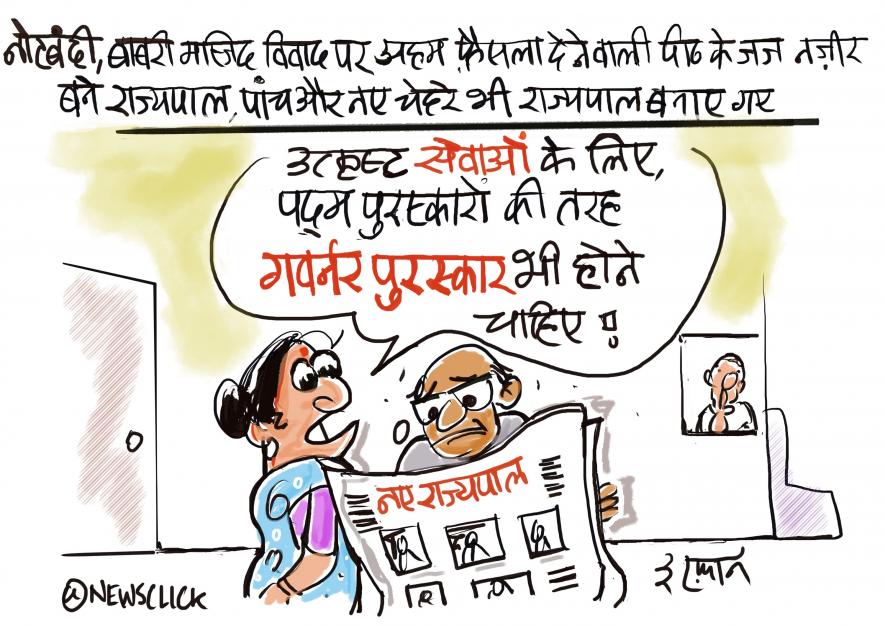 नोटबंदी, बाबरी मस्जिद विवाद पर अहम फ़ैसला देने वाली पीठ के जज नज़ीर
बने राज्यपाल, पांच और नए चेहरे भी राज्यपाल बनाए गए
उत्कृष्ट सेवाओं के लिए,
पद्म पुरस्कारों की तरह
गवर्नर पुरस्कार भी होने
चाहिए !!
नए राज्यपाल
इरफ़ान
@NEWSCLICK